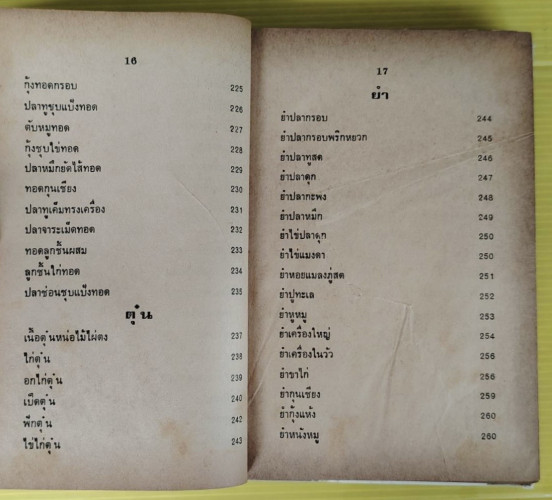 16
กุ้งทอดกรอบ 225
ปลาทูชุบแป้งทอด 226
ตับหมูทอด 227
กุ้งชุบไข่ทอด 228
ปลาหมึกยัดไส้ทอด 229
ทอดกุนเชียง 230
ปลาทูเค็มทรงเครื่อง 231
ปลาจาระเม็ดทอด 232
ทอดลูกชิ้นผสม 233
ลูกชิ้นไก่ทอด 234
ปลาช่อนชุบแป้งทอด 235
ตุ๋น
เนื้อตุ๋นหน่อไม้ไผ่ตง 237
ไก่ตุ๋น 238
อกไก่ตุ๋น 239
เป็ดตุ๋น 240
ฟักตุ๋น 242
ไข่ไก่ตุ๋น 243
17
ยำ
ยำปลากรอบ 244
ยำปลากรอบพริกหยวก 245
ยำปลาทูสด 246
ยำปลาดุก 247
ยำปลากะพง 248
ยำปลาหมึก 249
ยำไข่ปลาดุก 250
ยำไข่แมงดา 250
ยำหอยแมลงภู่สด 251
ยำปูทะเล 252
ยำหูหมู 253
ยำเครื่องใหญ่ 254
ยำเครื่องในวัว 256
ยำขาไก่ 256
ยำกุนเชียง 259
ยำกุ้งแห้ง 260
ยำหนังหมู 260